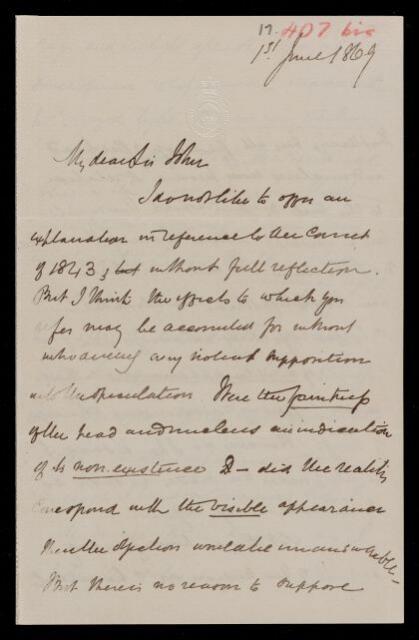 17. 407 bis
1st June 1869
My dear Sir John
I do not like to offer an
explanation in reference to the Comet
of 1843, but without full reflection.
But I think the effects to which you
refer may be accounted for without
introducing any violent supposition
into the speculation. Were the faintness
of the head and nucleus an indication
of its non-existence & - did the reality
correspond with the visible appearance
then the objection would be unanswerable -
But there is no reason to suppose